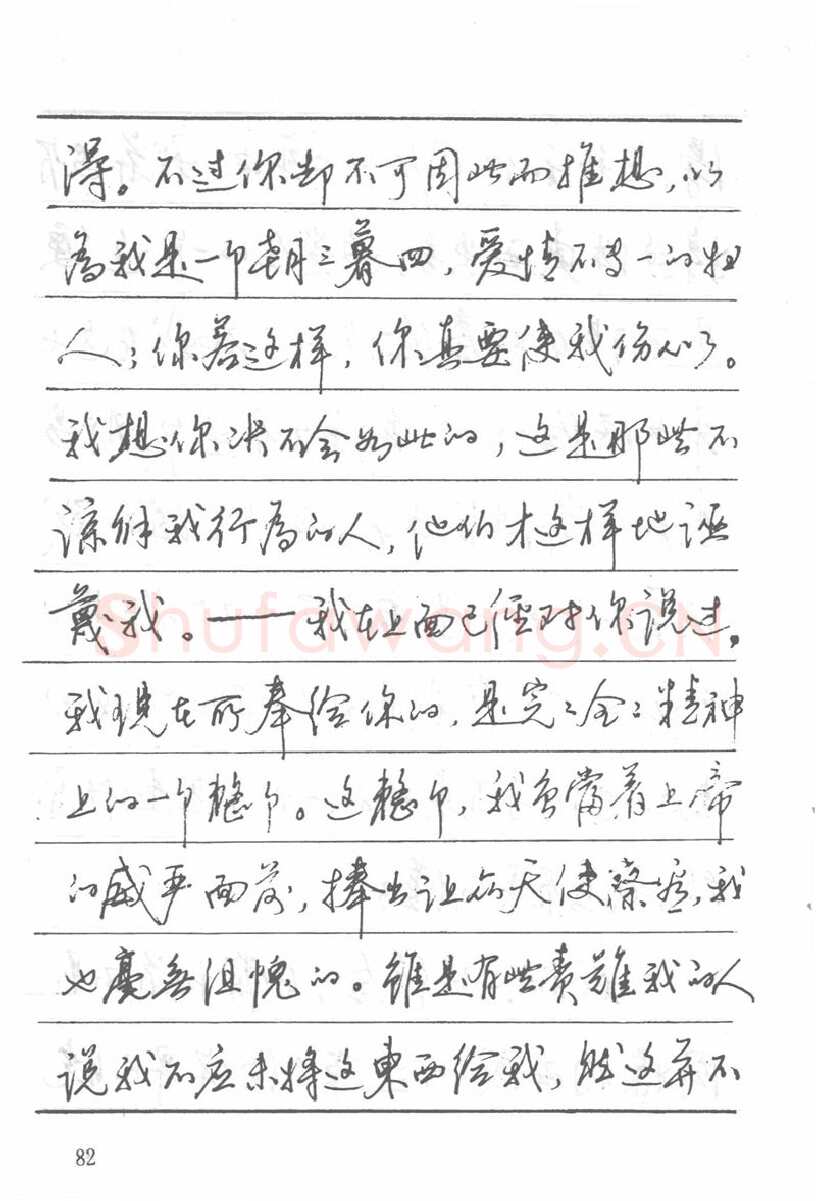 得。不过你却不可因此而推想，以
為我是一个朝三暮四，爱情不专一的妇
人；你若这样，你真要使我伤心了。
我想你决不会如此的，这是那些不
谅解我行為的人，他们才这样地诬
蔑我。——我在上面已经对你说过，
我现在所奉给你的，是完々全々精神
上的一个整个。这整个，我敢當着上帝
的威严面前，捧出让众天使察看，我
也毫無沮愧的。雖是有些责難我的人
说我不应来将这東西给我，然这并不
82
Shufawang.CN